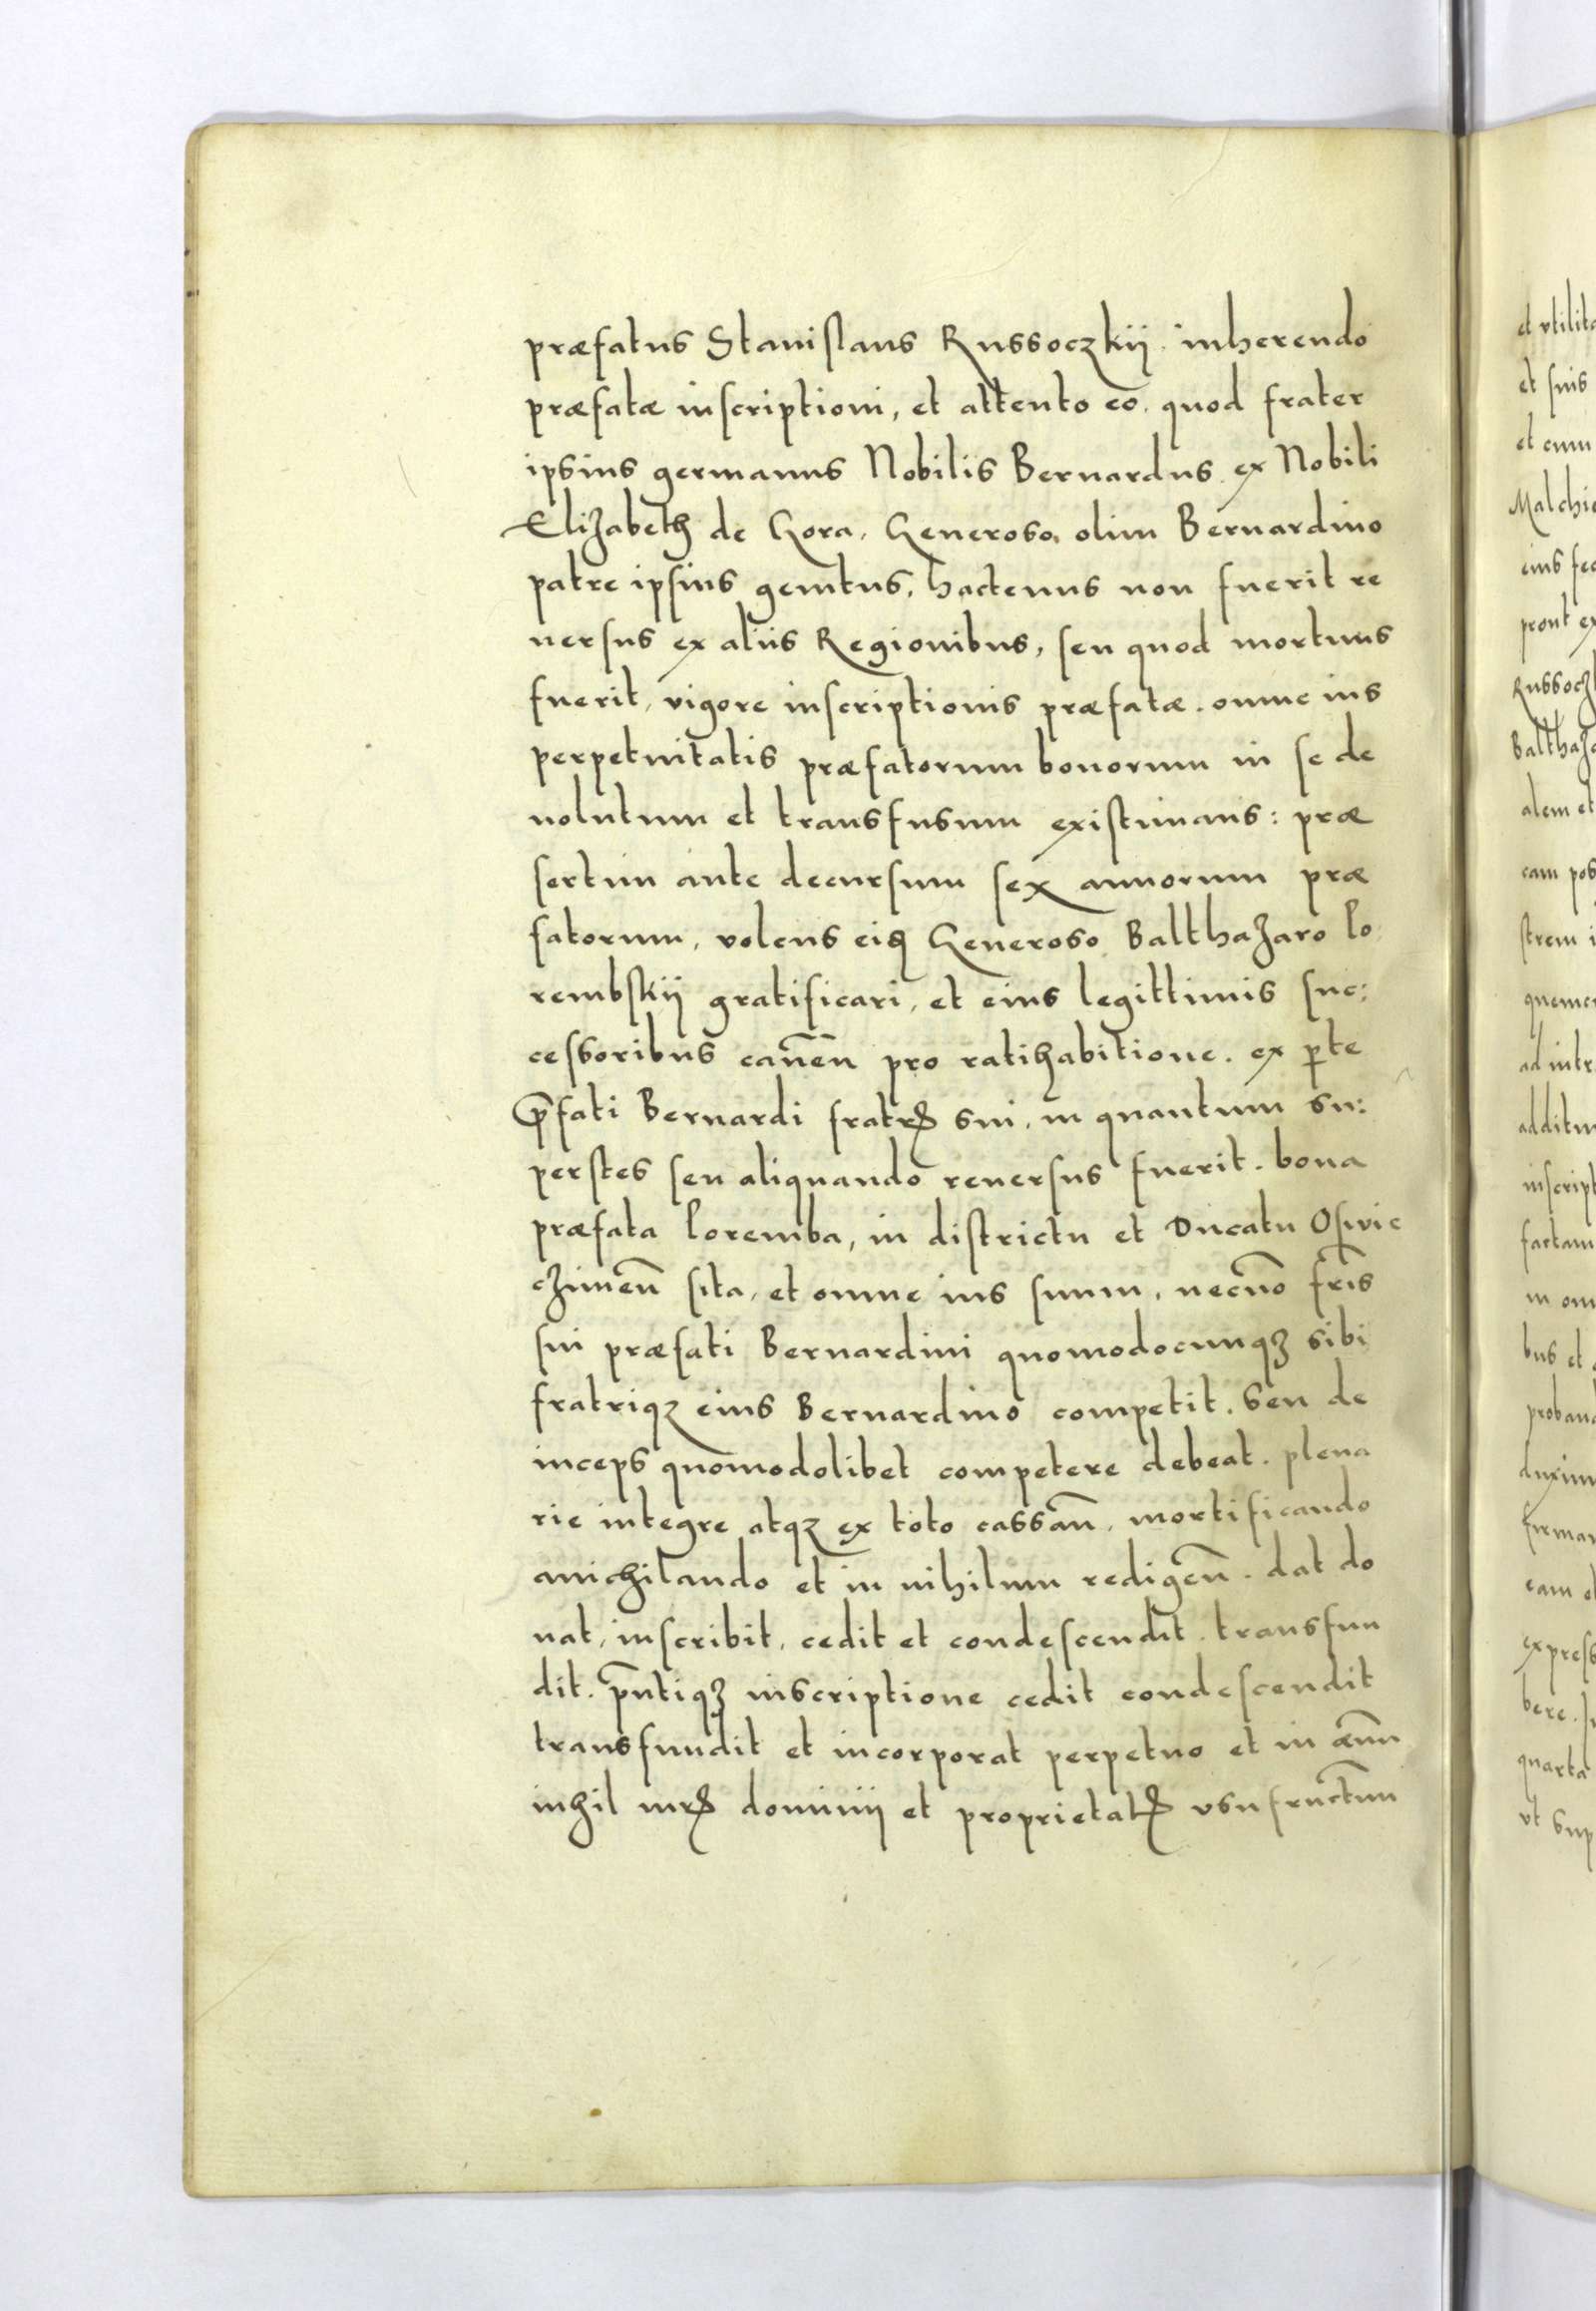 præfatus Stanislaus Russoczkij. inherendo
præfatæ inscriptioni, et attento eo. quod frater
ipsius germanus Nobilis Bernardus. ex Nobili
Elizabeth de Gora, Generoso, olim Bernardino
patre ipsius genitus, hactenus non fuerit re
uersus ex aliis Regionibus, seu quod mortuus
fuerit, vigore inscriptionis præfatæ. omne ius
perpetuitatis præfatorum bonorum in se de
uolutum et transfusum existimans: præ
sertim ante decursum sex annorum præ
fatorum, volens eisq Generoso Balthazaro Po
rembskij gratificari, et eius legittimis suc:
cessoribus cauen̄ pro ratihabitione. ex ꝑte
Pr̄fati Bernardi fratrꝭ sui, in quantum su:
perstes seu aliquando reuersus fuerit. bona
præfata Poremba, in districtu et Ducatu Oswie
czimen̄ sita, et omne ius suum, necno̅ fr̄is
sui præfati Bernardini quomodocunqꝫ sibi
fratriqꝫ eius Bernardino competit. Seu de
inceps quomodolibet competere debeat. plena
rie integre atqꝫ ex toto cassan̄. mortificando
anichilando et in nihilum redigen̄. dat do
nat, inscribit, cedit et condescendit. transfun
dit. pn̄tiqꝫ inscriptione cedit condescendit
transfundit et incorporat perpetuo et in æuū
inhil iurꝭ dominij et proprietatꝭ vsufructum
et vtilita
et suis
et cum
Malchi
eius fe
prout ex
Russocz
Balthaz
alem et
cam pos
strem i
quemc
ad intr
additu
inscript
factam
in om
bus et
probans
duxim
firman
eam o
express
bere. s
quarta
vt sup